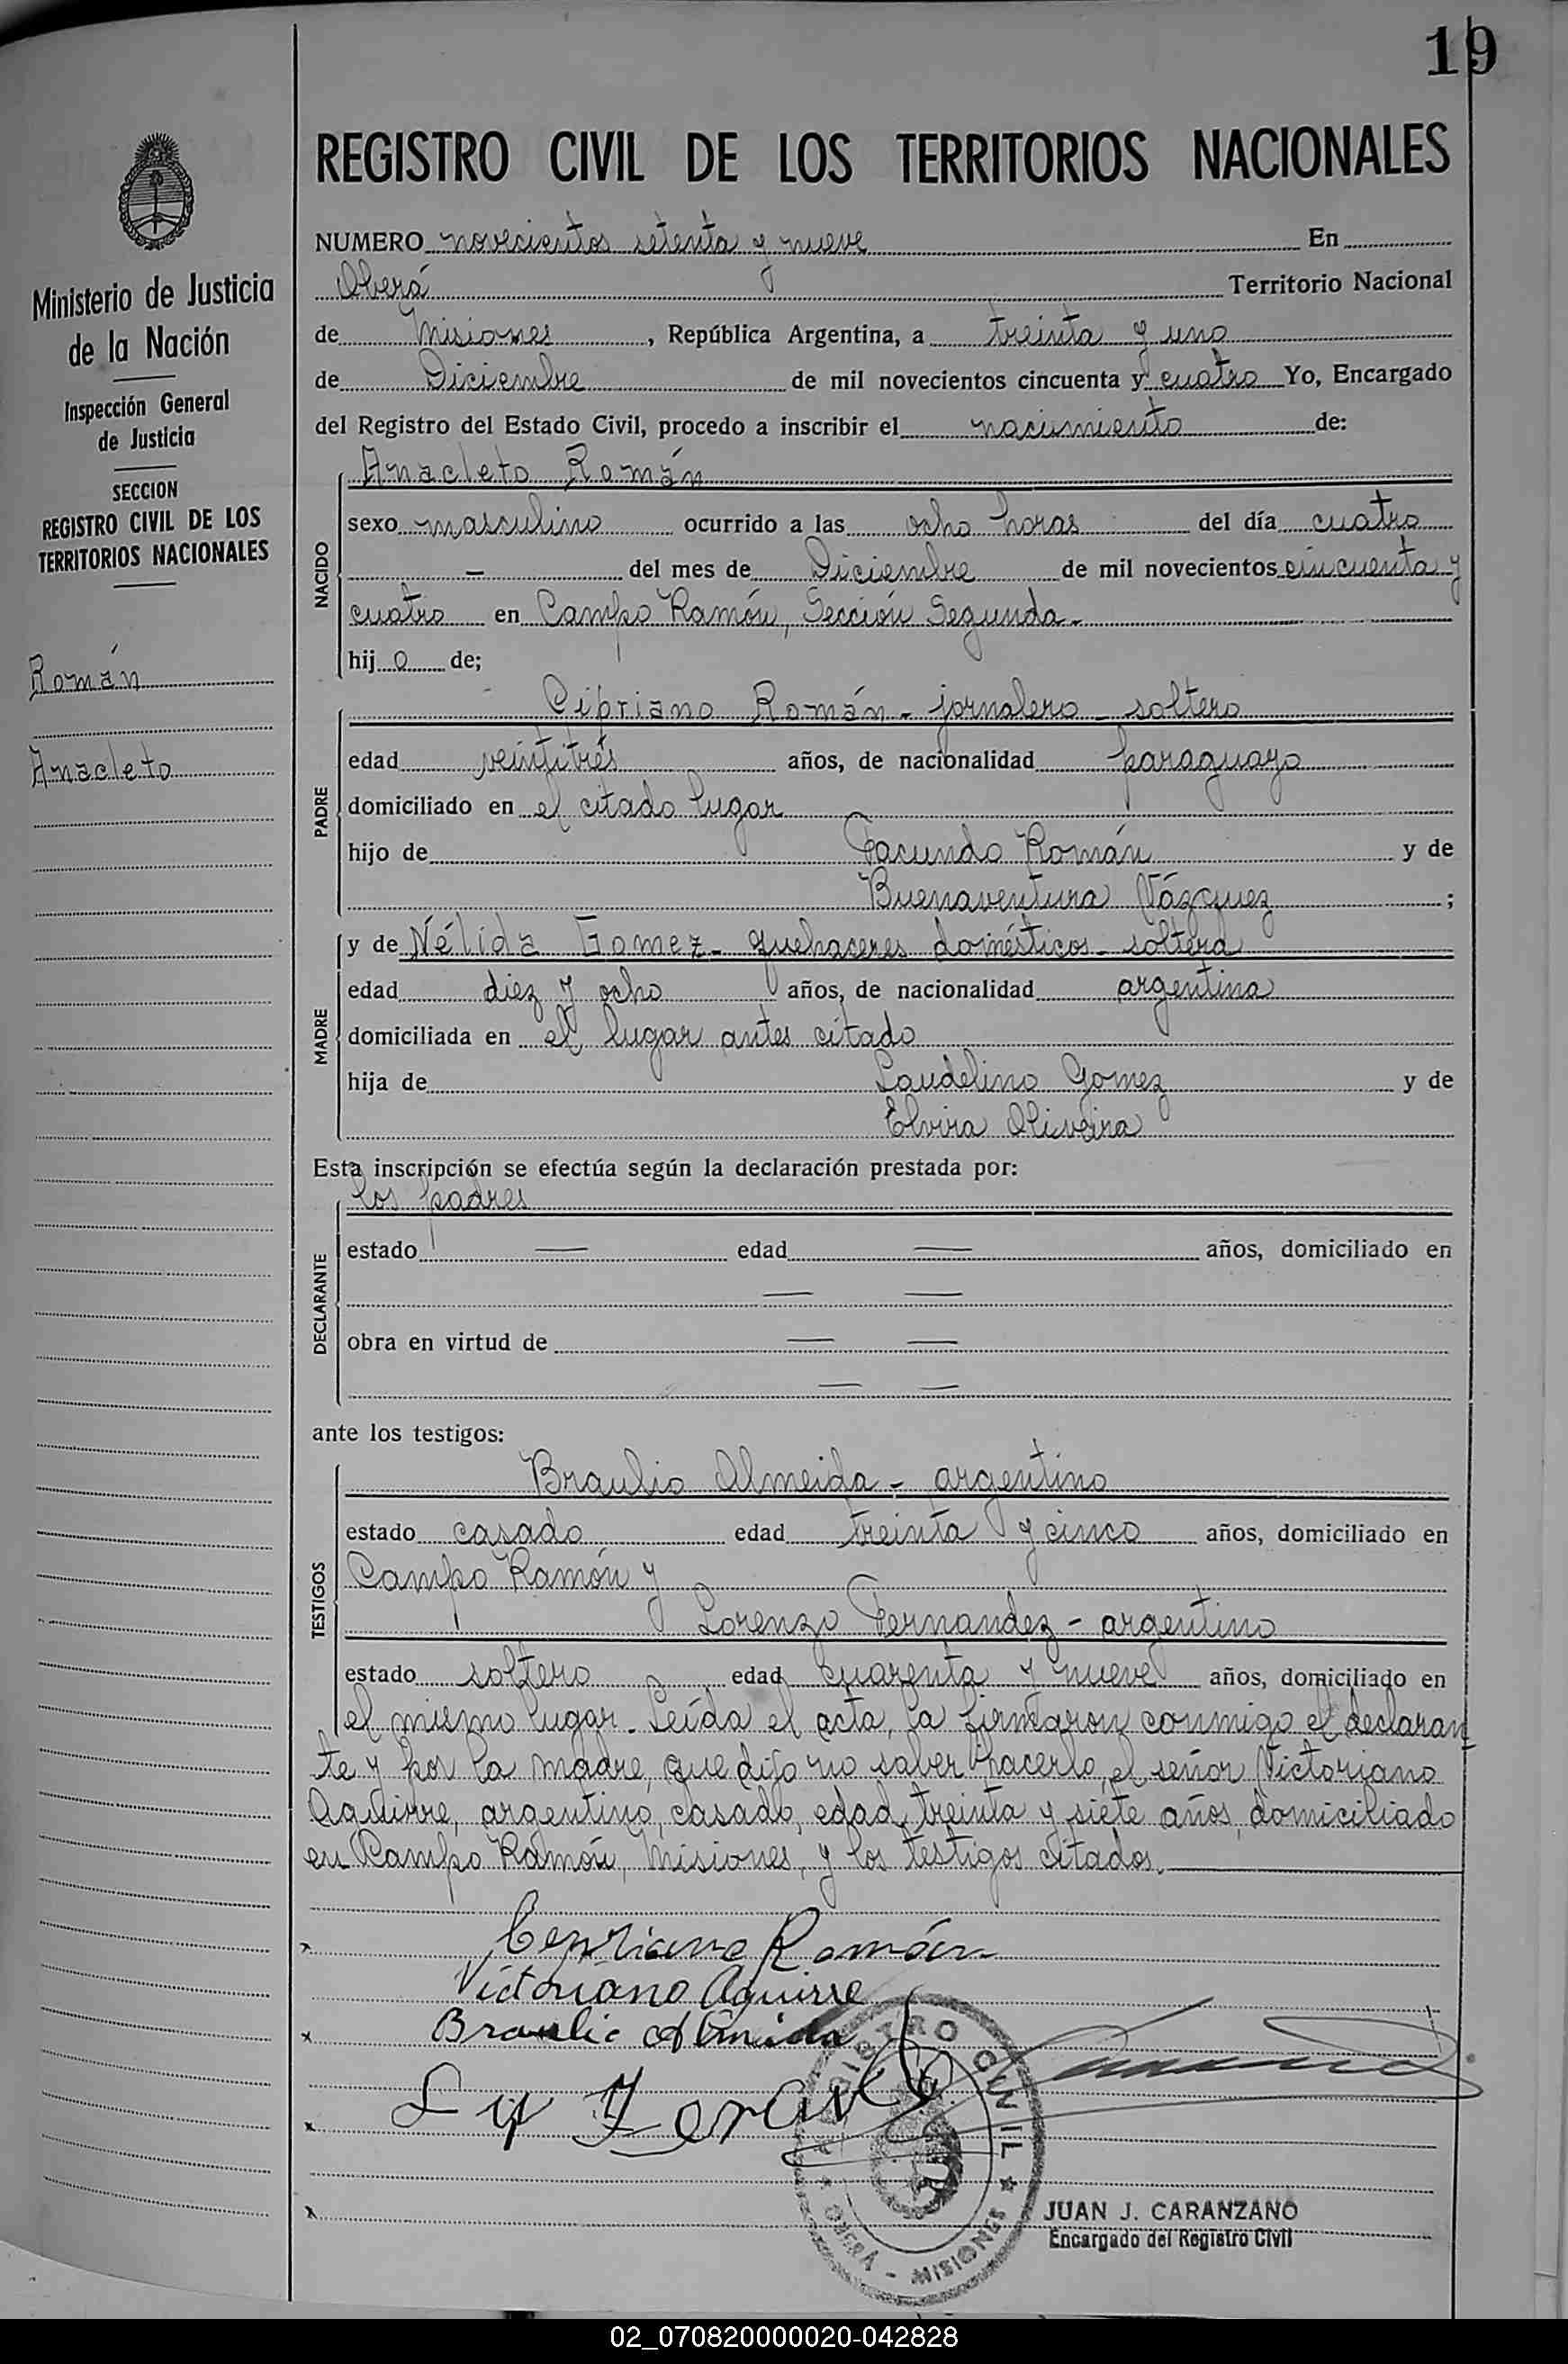 19
REGISTRO CIVIL DE LOS TERRITORIOS NACIONALES
Ministerio de Justicia
de la Nación
Inspección General
de Justicia
SECCION
REGISTRO CIVIL DE LOS
TERRITORIOS NACIONALES
Román
Anacleto
NUMERO novecientos setenta y nueve En
Oberá Territorio Nacional
de Misiones, República Argentina, a treinta y uno
de Diciembre de mil novecientos cincuenta y cuatro Yo, Encargado
del Registro del Estado Civil, procedo a inscribir el nacimiento de:
Anacleto Román
NACIDO
sexo masculino ocurrido a las ocho horas del día cuatro
- del mes de Diciembre de mil novecientos cincuenta y
cuatro en Campo Ramón, Sección Segunda-
hijo de;
Cipriano Román - jornalero - soltero
PADRE
edad veintitrés años, de nacionalidad paraguayo
domiciliado en el citado lugar
hijo de Facundo Román y de
Buenaventura Vázquez ;
y de Nélida Gomez - quehaceres domésticos - soltera
MADRE
edad diez y ocho años, de nacionalidad argentina
domiciliada en el lugar antes citado
hija de Laudelino Gomez y de
Elvira Oliveira
Esta inscripción se efectúa según la declaración prestada por:
los padres
DECLARANTE
estado — edad — años, domiciliado en
— —
obra en virtud de — —
— —
ante los testigos:
Braulio Almeida - argentino
TESTIGOS
estado casado edad treinta y cinco años, domiciliado en
Campo Ramón y
Lorenzo Fernandez - argentino
estado soltero edad cuarenta y nueve años, domiciliado en
el mismo lugar. Leída el acta, la firmaron conmigo el declaran
te y por la madre, que dijo no saber hacerlo, el señor Victoriano
Aguirre, argentino, casado, edad treinta y siete años, domiciliado
en Campo Ramón, Misiones, y los testigos citados.
Cepriano Román
Victoriano Aguirre
Braulio Almeida
REGISTRO CIVIL
OBERÁ - MISIONES
JUAN J. CARANZANO
Encargado del Registro Civil
02_070820000020-042828